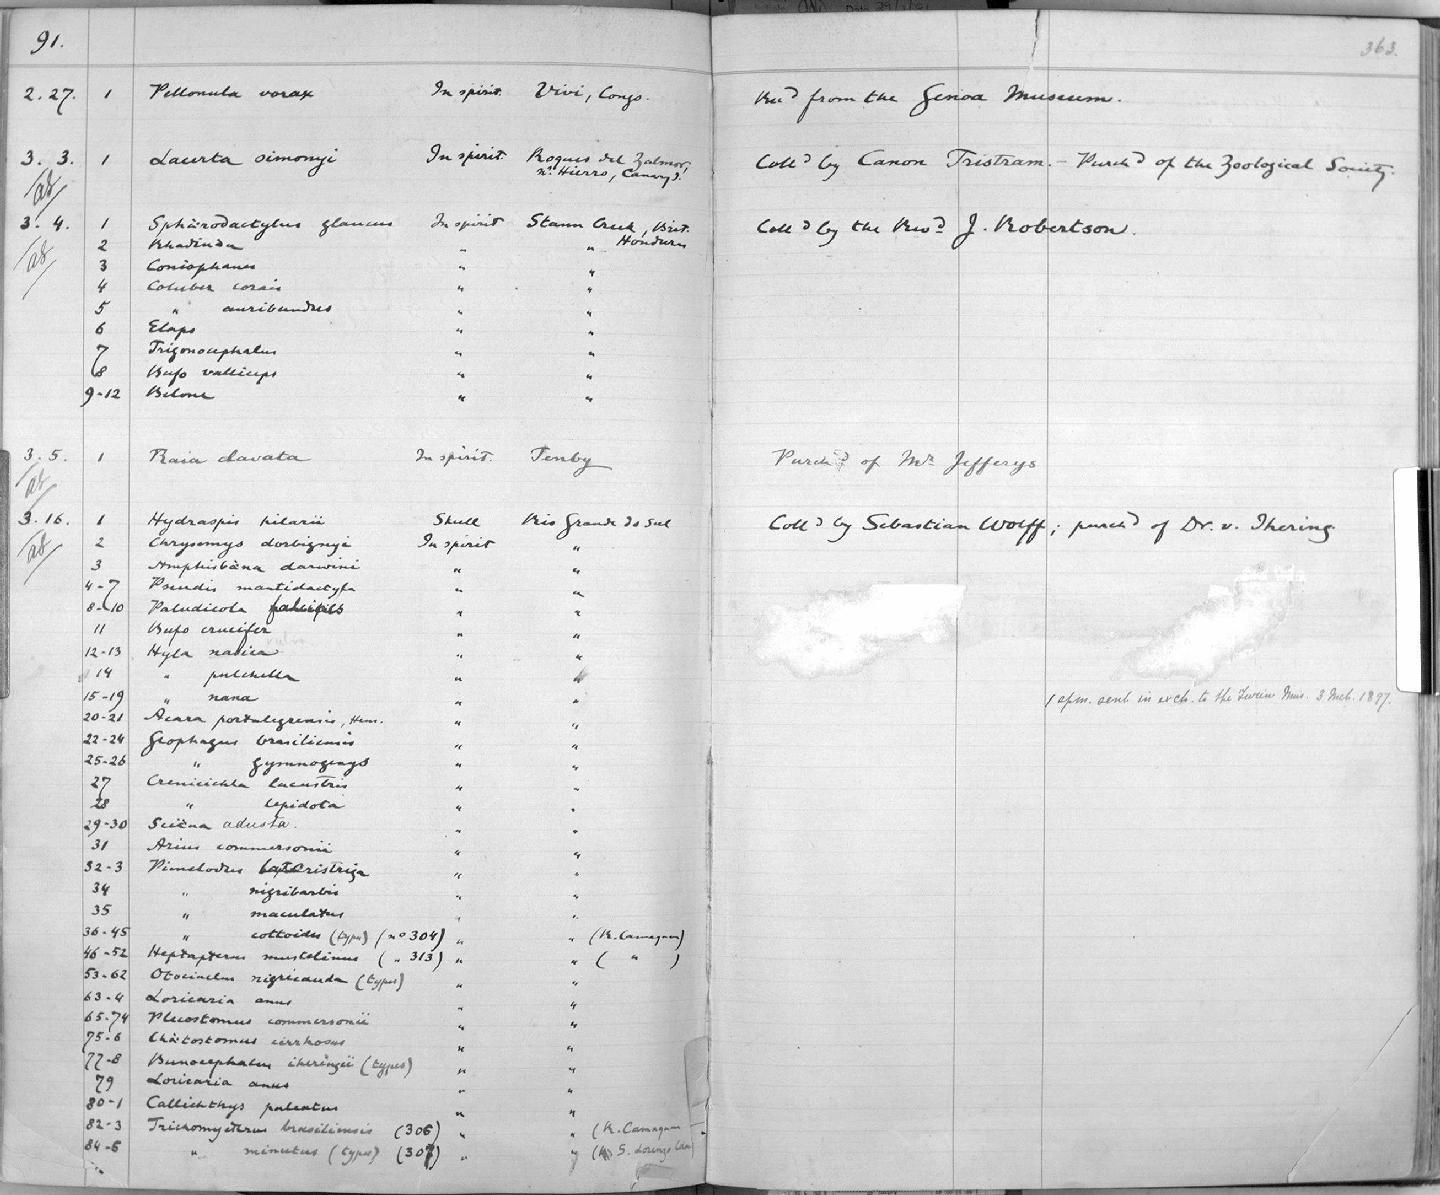 91.
363.
2.27. 1 Pellonula vorax In spirit. Vivi, Congo. Rec'd from the Genoa Museum.
3. 3. 1 Lacerta simonyi In spirit. Roques del Zalmor, Coll'd by Canon Tristram. - Purch'd of the Zoological Society.
nr Hierro, Canary Is.
3. 4. 1 Sphærodactylus glaucus In spirit Stann Creek, Brit. Coll'd by the Rev'd J. Robertson.
2 Rhadinæa " " Honduras
3 Coniophanes " "
4 Coluber corais " "
5 " auribundus " "
6 Elaps " "
7 Trigonocephalus " "
8 Bufo valliceps " "
9-12 Belone " "
3. 5. 1 Raia clavata In spirit. Tenby Purch'd of Mr Jefferys
3.16. 1 Hydraspis hilarii Skull Rio Grande do Sul Coll'd by Sebastian Wolff; purch'd of Dr. v. Ihering
2 Chrysemys dorbignyi In spirit "
3 Amphisbæna darwini " "
4-7 Pseudis mantidactyla " "
8-10 Paludicola falcipes " "
11 Bufo crucifer " "
12-13 Hyla nasica " "
14 " pulchella " "
15-19 " nana " " 1 spm. sent in exch. to the Turin Mus. 3 Feb. 1897.
20-21 Acara portalegrensis, Hens. " "
22-24 Geophagus brasiliensis " "
25-26 " gymnogenys " "
27 Crenicichla lacustris " "
28 " lepidota " "
29-30 Sciæna adusta. " "
31 Arius commersonii " "
32-3 Pimelodus lateristriga " "
34 " nigribarbis " "
35 " maculatus " "
36-45 " cottoides (types) (no 304) " " (R. Camaquam)
46-52 Heptapterus mustelinus ( " 313) " " ( " )
53-62 Otocinclus nigricauda (types) " "
63-4 Loricaria anus " "
65-74 Plecostomus commersonii " "
75-6 Chætostomus cirrhosus " "
77-8 Bunocephalus iheringii (types) " "
79 Loricaria anus " "
80-1 Callichthys paleatus " "
82-3 Trichomycterus brasiliensis (306) " " (R. Camaquam
84-6 " minutus (types) (307) " " S. Lorenzo